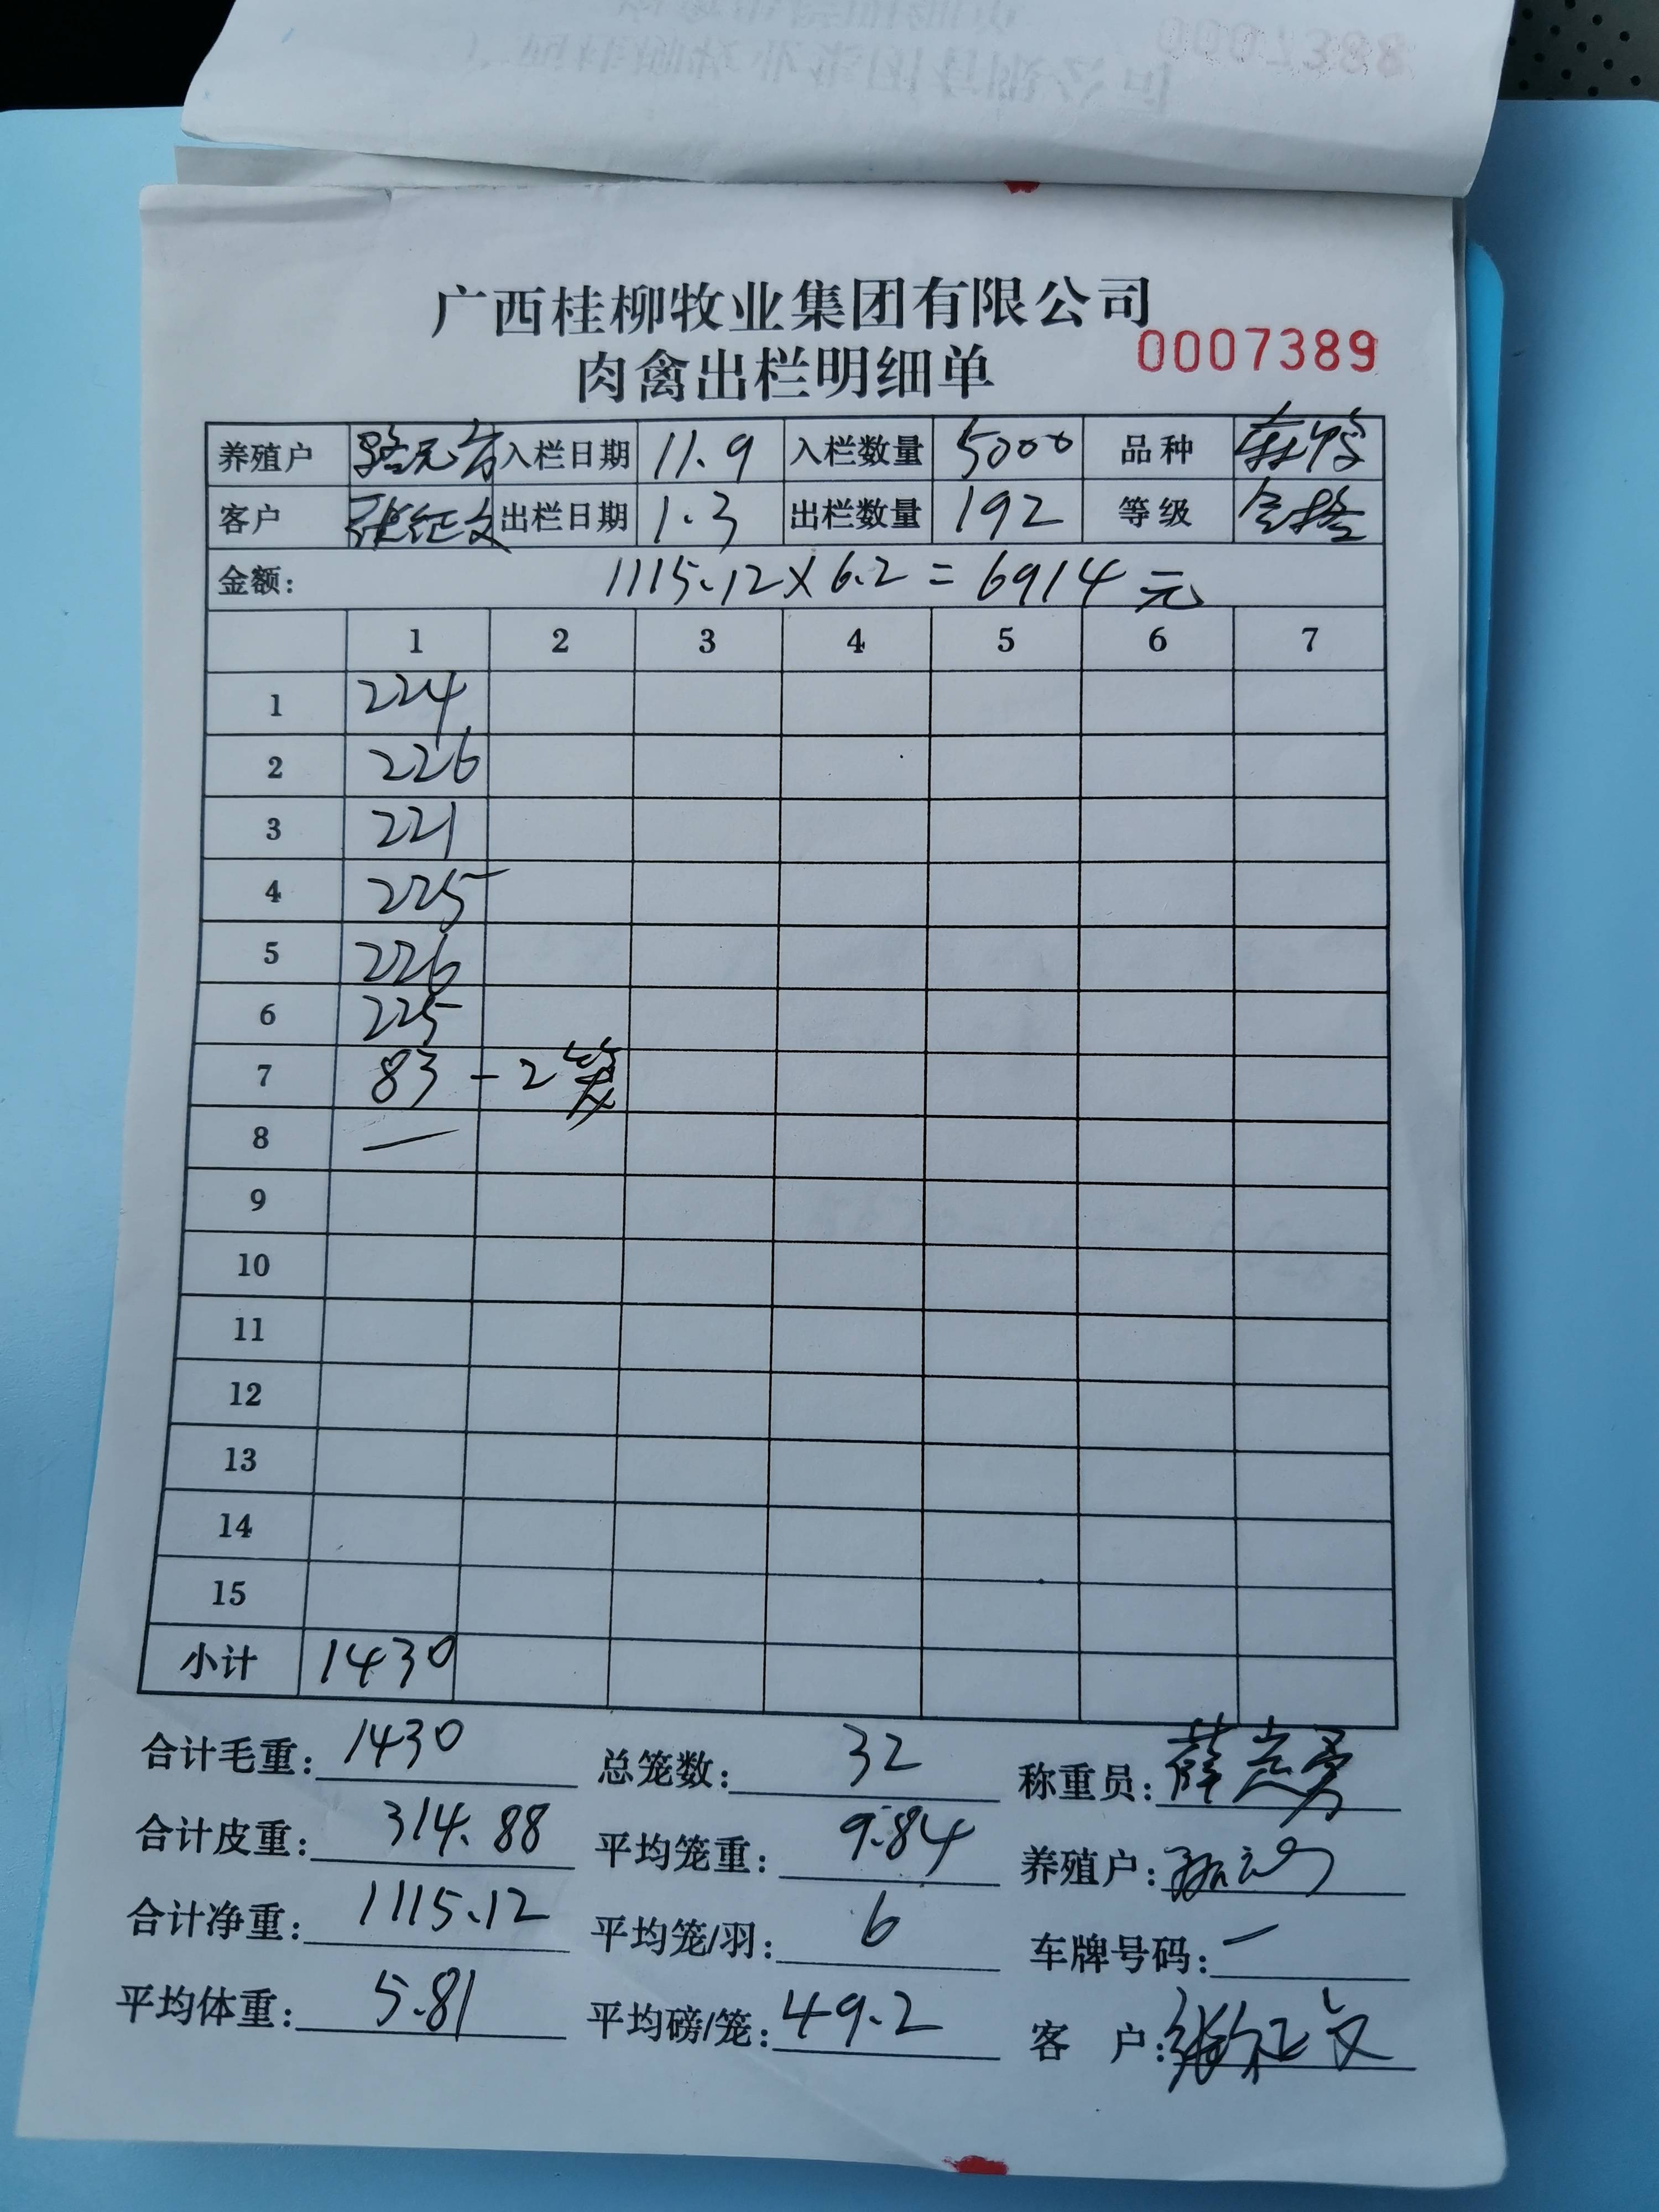 0007388
广西桂柳牧业集团有限公司
肉禽出栏明细单 0007389
养殖户 入栏日期 11.9 入栏数量 5000 品种
客户 张红文 出栏日期 1.3 出栏数量 192 等级 合格
金额: 1115.12×6.2=6914元
1 2 3 4 5 6 7
1 224
2 226
3 221
4 225
5 226
6 225
7 83 - 2笼
8 —
9
10
11
12
13
14
15
小计 1430
合计毛重: 1430 总笼数: 32 称重员:
合计皮重: 314.88 平均笼重: 9.84 养殖户:
合计净重: 1115.12 平均笼/羽: 6 车牌号码: —
平均体重: 5.81 平均磅/笼: 49.2 客 户: 张红文